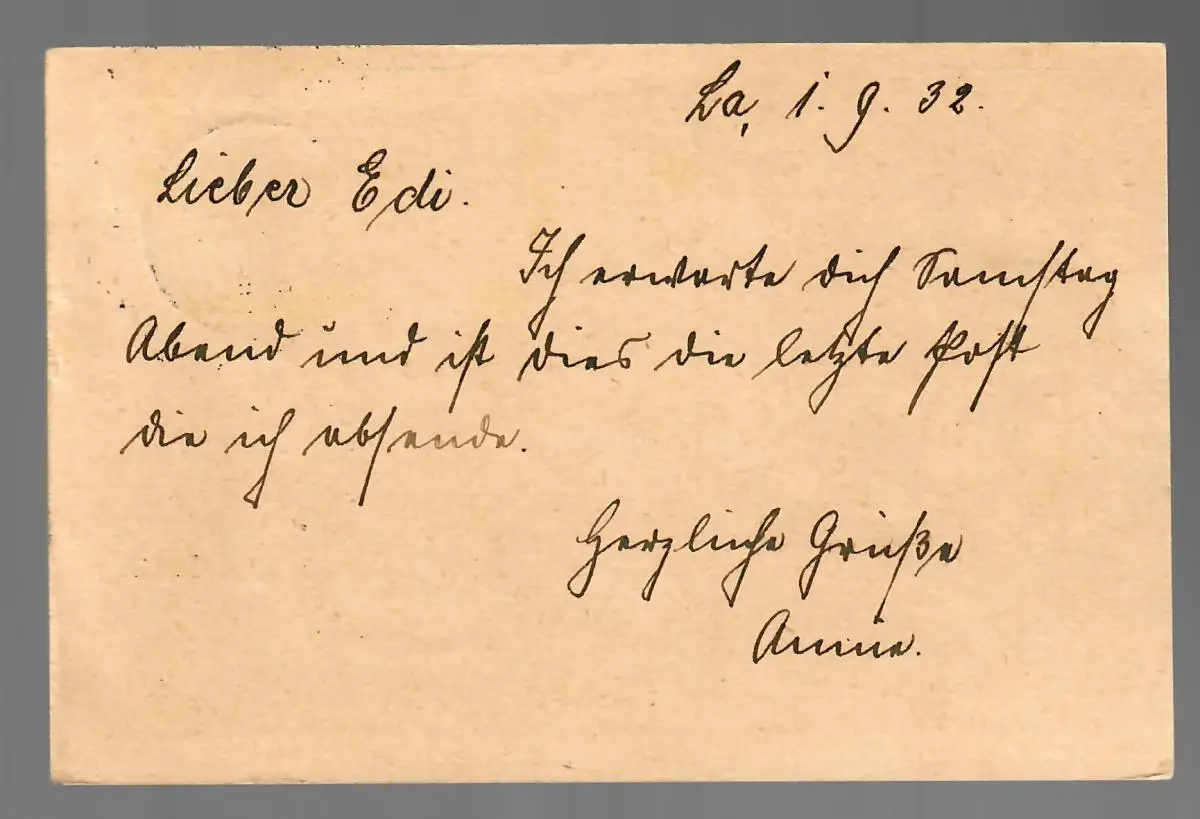 La, 1. 9. 32.
Lieber Edi.
Ich erwarte dich Samstag
Abend und ist dies die letzte Post
die ich absende.
Herzliche Grüße
Annie.